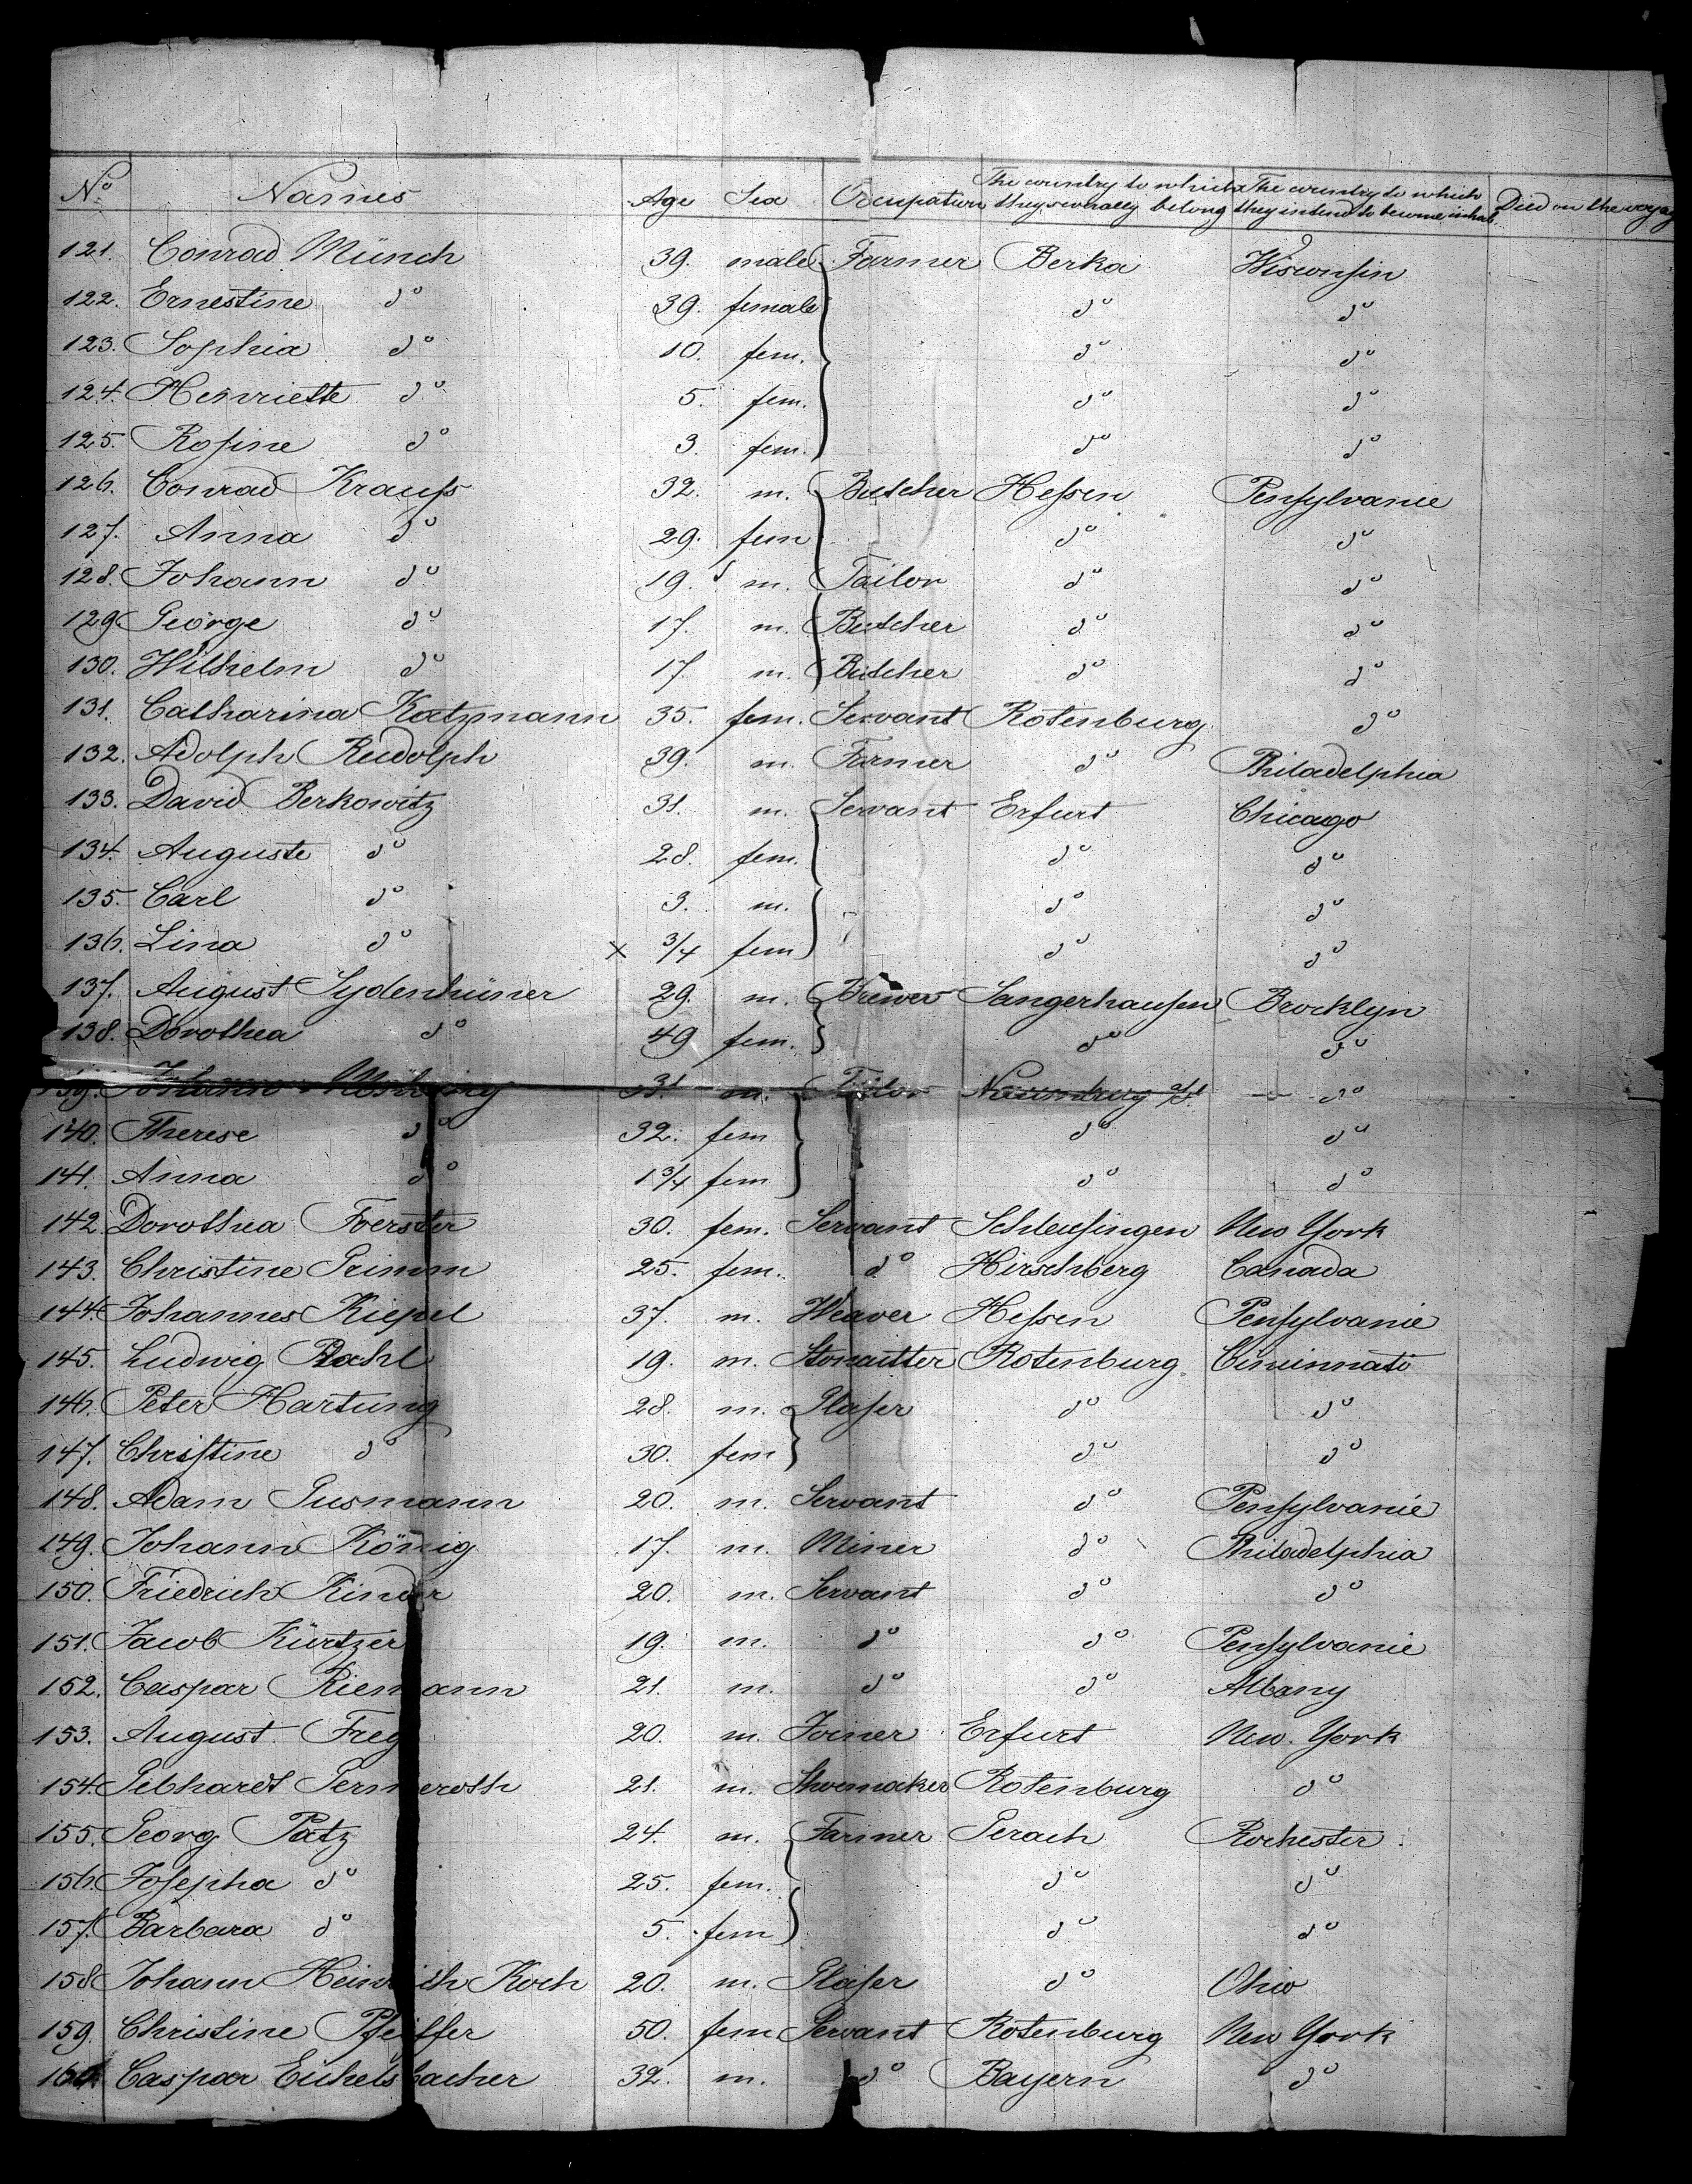 No Names Age Sex Occupation The country to which they severally belong The country to which they intend to become inhab. Died on the voyag
121. Conrad Münch 39. male Farmer Berka Wisconsin
122. Ernestine do 39. female do do
123. Sophia do 10. fem. do do
124. Henriette do 5. fem. do do
125. Rosine do 3. fem. do do
126. Conrad Krauss 32. m. Butcher Hessen Pensylvanie
127. Anna do 29. fem do do
128. Johann do 19. m. Tailor do do
129 George do 17. m. Butcher do do
130. Wilhelm do 17. m. Butcher do do
131. Catharina Katzmann 35. fem. Servant Rotenburg do
132. Adolph Rudolph 39. m. Farmer do Philadelphia
133. David Berkowitz 31. m. Servant Erfurt Chicago
134. Auguste do 28. fem. do do
135. Carl do 3. m. do do
136. Lina do x 3/4 fem do do
137. August Sydenhüner 29. m. Brewer Sangerhausen Brocklyn
138. Dorothea do 49 fem. do do
139. Johann 31. m. Tailor Naumburg a/S. do
140. Therese do 32. fem do do
141. Anna do 1 3/4 fem do do
142. Dorothea Foerster 30. fem. Servant Schleusingen New York
143. Christine Grimm 25. fem. do Hirschberg Canada
144. Johannes Kiepel 37. m. Weaver Hessen Pensylvanie
145. Ludwig 19. m. Stonecutter Rotenburg Cincinnati
146. Peter Hartung 28. m. Glaser do do
147. Christine do 30. fem do do
148. Adam Gusmann 20. m. Servant do Pensylvanie
149. Johann König 17. m. Miner do Philadelphia
150. Friedrich Kinder 20. m. Servant do do
151. Jacob Kürtzer 19. m. do do Pensylvanie
152. Caspar Riemann 21. m. do do Albany
153. August Frey 20. m. Joiner Erfurt New. York
154. Gebhardt Germeroth 21. m. Shoemaker Rotenburg do
155. Georg Patz 24. m. Farmer Gerach Rochester
156. Josepha do 25. fem. do do
157. Barbara do 5. fem do do
158 Johann Heinrich Koch 20. m. Glaser do Ohio
159. Christine Pfeiffer 50. fem Servant Rotenburg New York
160. Caspar Eichelsbacher 32. m. do Bayern do